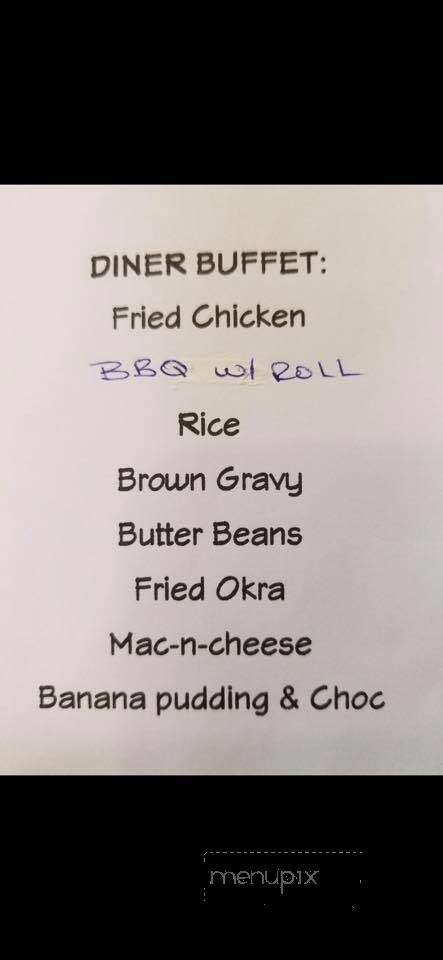 DINER BUFFET:
Fried Chicken
BBQ w/ ROLL
Rice
Brown Gravy
Butter Beans
Fried Okra
Mac-n-cheese
Banana pudding & Choc
menupix